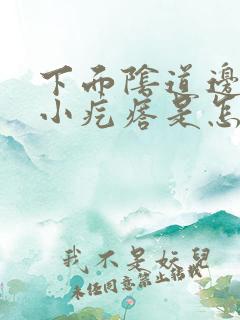 下面陰道邊
小疙瘩是怎
我不是妖兒
未经同意禁止転載